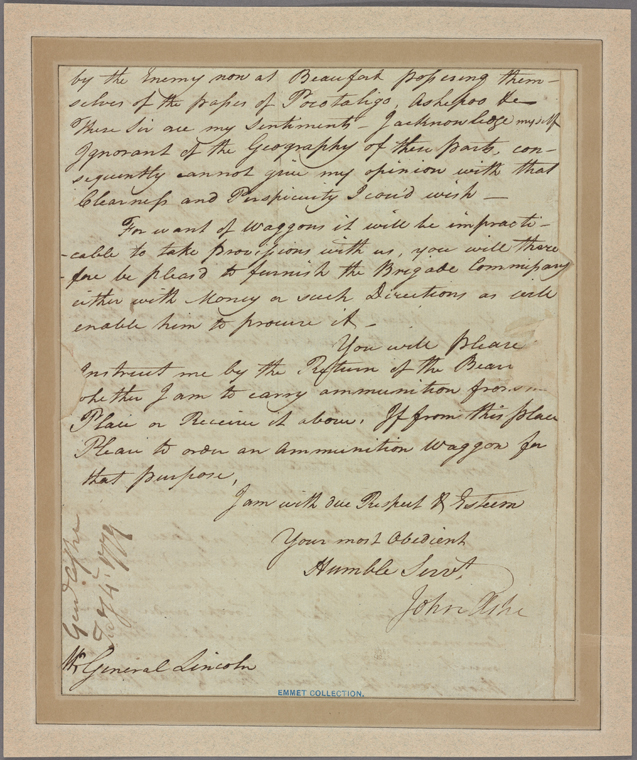 by the Enemy now at Beaufort possessing them-
selves of the passes of Pocotaligo, Ashepoo &c
These Sir are my Sentiments - I acknowledge myself
Ignorant of the Geography of these parts, con-
sequently cannot give my opinion with that
Clearness and Perspicuity I cou'd wish —
For want of Waggons it will be impracti-
-cable to take provisions with us, you will there
-fore be pleas'd to furnish the Brigade Commissary
either with Money or such Directions as will
enable him to procure it -
You will please
Instruct me by the Return of the Bear
whether I am to carry ammunition from
Place or Receive it above. If from this place
Please to order an ammunition Waggon for
that purpose,
I am with due Respect & Esteem
Your most Obedient
Humble Servt,
John Ashe
Genl. Ashe
4th 1779
General Lincoln
EMMET COLLECTION.